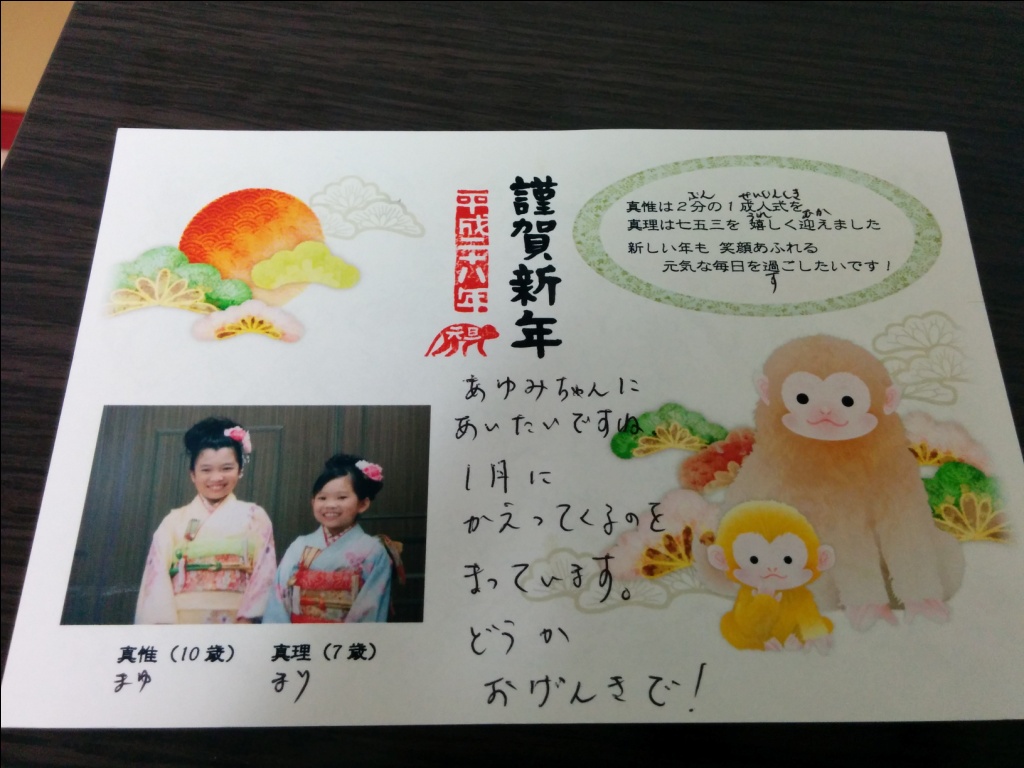 謹賀新年
平成二十八年
祝
ぶん せいじんしき
真惟は2分の1成人式を
うれ むか
真理は七五三を 嬉しく迎えました
新しい年も 笑顔あふれる
元気な毎日を過ごしたいです!
す
あゆみちゃんに
あいたいですね、
1月に
かえってくるのを
まっています。
どうか
おげんきで!
真惟(10歳) 真理(7歳)
まゆ まり